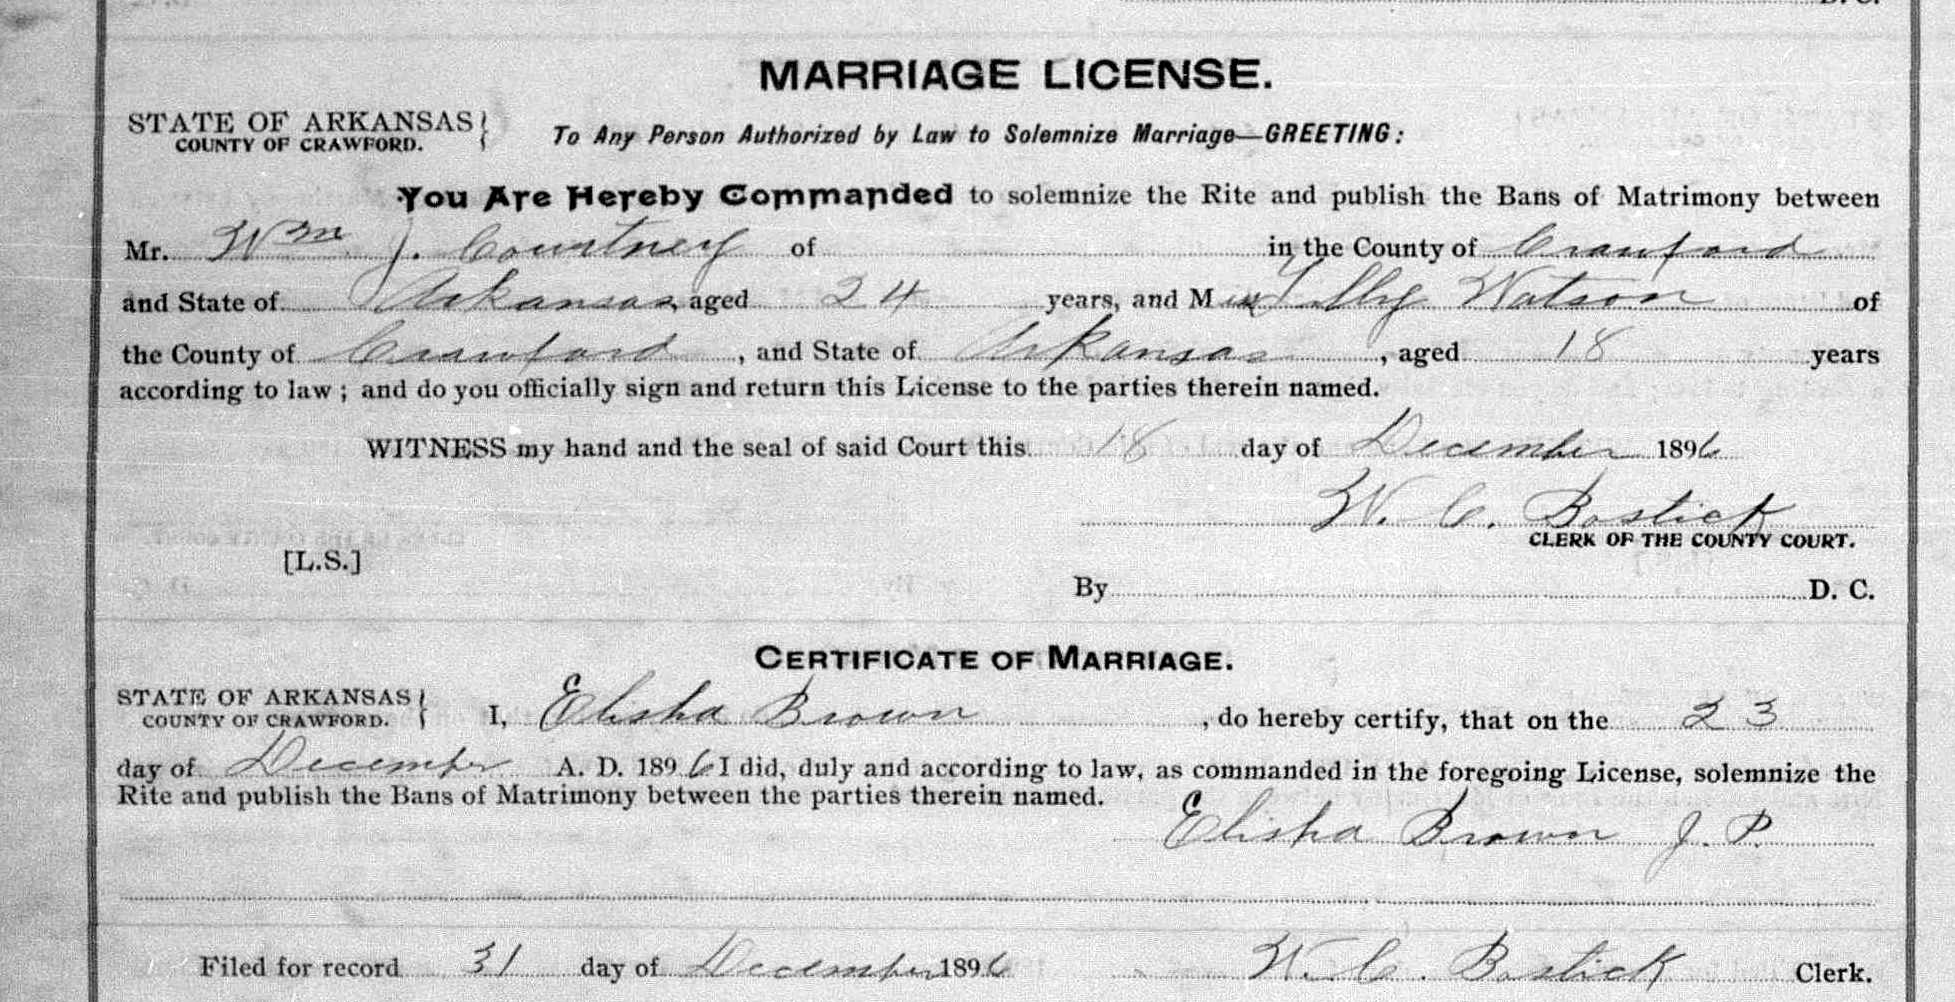 D. C.
MARRIAGE LICENSE.
STATE OF ARKANSAS
COUNTY OF CRAWFORD.
To Any Person Authorized by Law to Solemnize Marriage—GREETING:
You Are Hereby Commanded to solemnize the Rite and publish the Bans of Matrimony between
Mr. Wm J. Courtney of in the County of Crawford
and State of Arkansas, aged 24 years, and Miss Watson of
the County of Crawford, and State of Arkansas, aged 18 years
according to law; and do you officially sign and return this License to the parties therein named.
WITNESS my hand and the seal of said Court this 18 day of December 1896
W. C. Bostick
CLERK OF THE COUNTY COURT.
[L.S.]
By D. C.
CERTIFICATE OF MARRIAGE.
STATE OF ARKANSAS
COUNTY OF CRAWFORD.
I, Elisha Brown, do hereby certify, that on the 23
day of December A. D. 1896 I did, duly and according to law, as commanded in the foregoing License, solemnize the
Rite and publish the Bans of Matrimony between the parties therein named.
Elisha Brown J. P.
Filed for record 31 day of December 1896 W. C. Bostick Clerk.